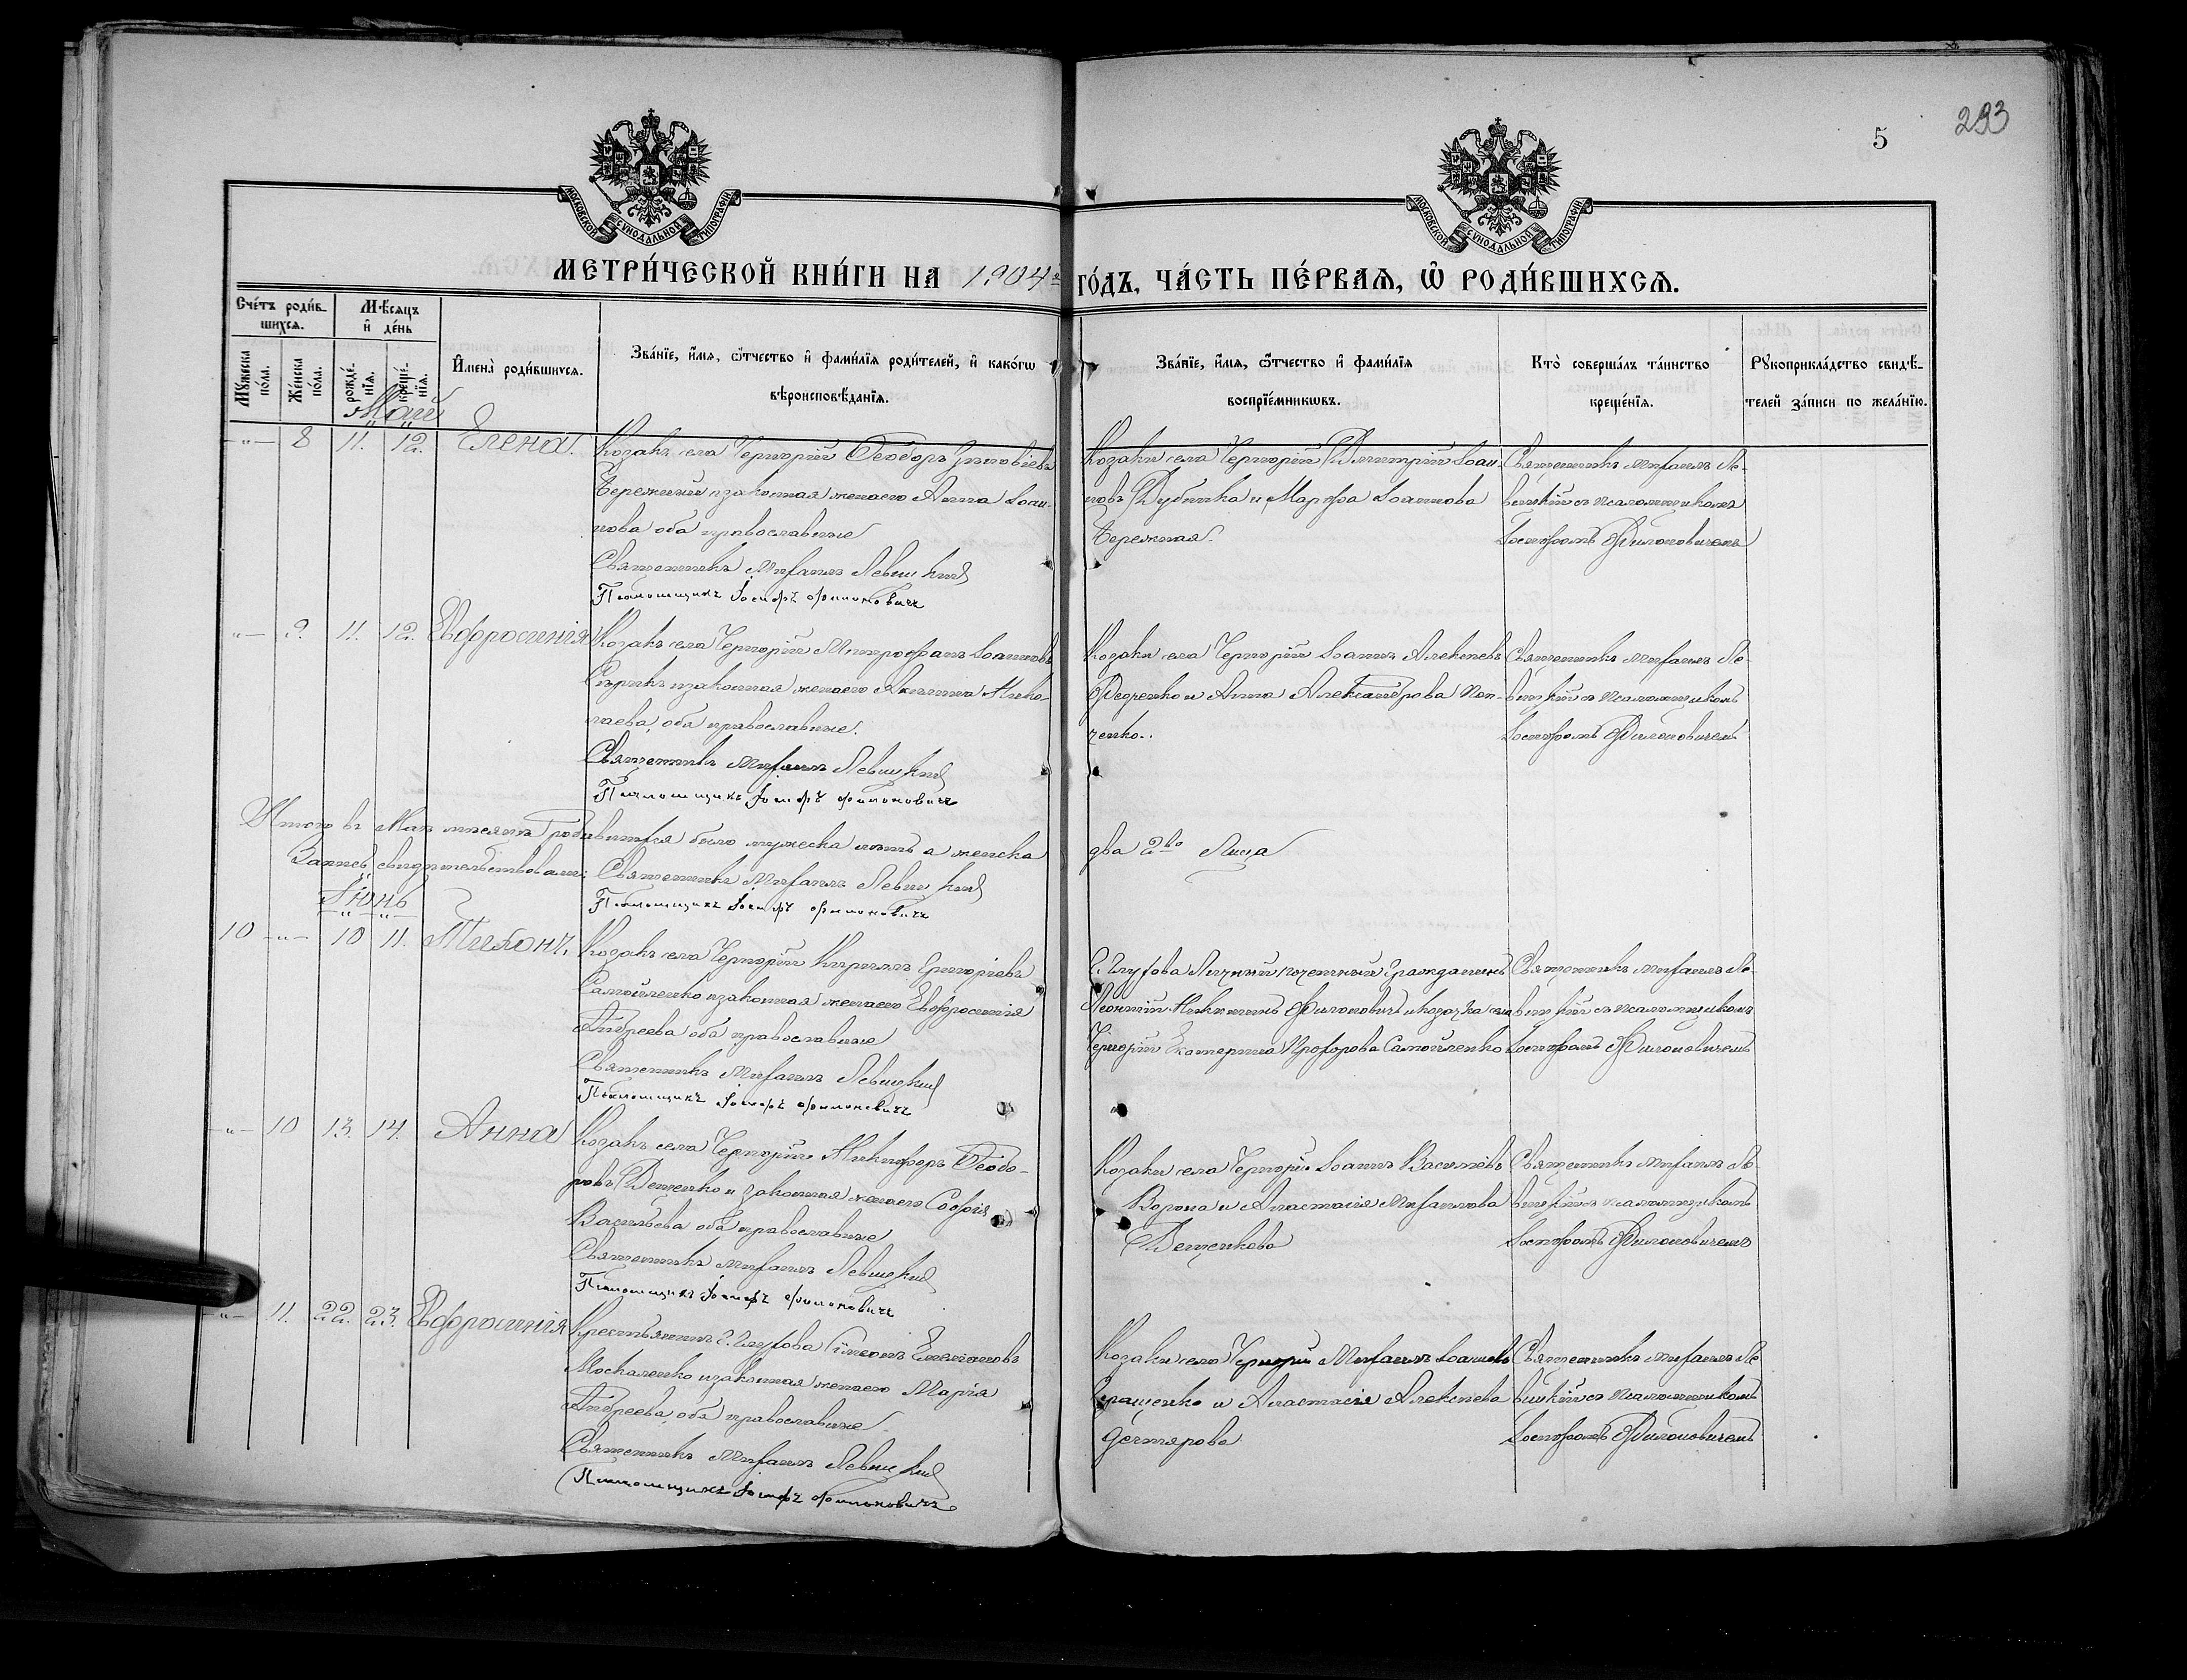 293
5
МОСКОВСКОЙ СУНОДАЛЬНОЙ ТИПОГРАФІИ
МОСКОВСКОЙ СУНОДАЛЬНОЙ ТИПОГРАФІИ
МЕТРИ́ЧЕСКОЙ КНИ́ГИ НА 1904й ГО́ДЪ, ЧА́СТЬ ПЕ́РВАѦ, Ѡ РОДИ́ВШИХСѦ.
Сче́тъ роди́в-
шихсѧ.
Мꙋ́жеска по́ла.
Же́нска по́ла.
Мѣ́сѧцъ
и҆ де́нь
рожде́-
нїѧ.
креще́-
нїѧ.
И҆мена̀ роди́вшихсѧ.
Зва́нїе, и҆́мѧ, ѻ҆́тчество и҆ фами́лїѧ роди́телей, и҆ како́гѡ
вѣроисповѣ́данїѧ.
Зва́нїе, и҆́мѧ, ѻ҆́тчество и҆ фами́лїѧ
воспрїе́мникѡвъ.
Кто̀ соверша́лъ та́инство
креще́нїѧ.
Рꙋкоприкла́дство свидѣ́-
телей за́писи по жела́нїю.
Май
-„- 8 11. 12. Елена.
Козакъ села Чернорій Ѳеодоръ Зиновіевъ
Бережный и законная жена его Анна Іоан-
нова оба православные
Священникъ Михаилъ Левицкій
Псаломщикъ Іосифъ Филоновичъ
Козаки села Чернорій Димитрій Іоан-
новъ Дубинка и Марфа Іоаннова
Бережная.
Священникъ Михаилъ Ле-
вицкій съ псаломщикомъ
Іосифомъ Филоновичемъ
-„- 9. 11. 12. Евфросинія
Козакъ села Чернорій Митрофанъ Іоанновъ
и законная жена его Нико-
лаева, оба православные.
Священникъ Михаилъ Левицкій
Псаломщикъ Іосифъ Филоновичъ
Козаки села Чернорій Іоаннъ Алексѣевъ
Федченко и Анна Александрова Поп-
ченко.
Священникъ Михаилъ Ле-
вицкій съ псаломщикомъ
Іосифомъ Филоновичемъ
Итого въ Маѣ мѣсяцѣ родившихся было мужеска нѣтъ а женска два 2во Лица
Запись свидѣтельствовали: Священникъ Михаилъ Левицкій
Псаломщикъ Іосифъ Филоновичъ
Іюнь
10 -„- 10 11. Тихонъ.
Козакъ села Чернорій Кириллъ Григоріевъ
Самойленко и законная жена его Евфросинія
Андреева оба православные
Священникъ Михаилъ Левицкій
Псаломщикъ Іосифъ Филоновичъ
Г. Глухова Личный почетный Гражданинъ
Леонтій Никитинъ Филоновичъ и козачка села
Чернорій Екатерина Прохорова Самойленко
Священникъ Михаилъ Ле-
вицкій съ псаломщикомъ
Іосифомъ Филоновичемъ
-„- 10 13. 14. Анна
Козакъ села Чернорій Никифоръ Ѳеодо-
ровъ Деменко и законная жена его Софія
Васильева оба православные
Священникъ Михаилъ Левицкій
Псаломщикъ Іосифъ Филоновичъ
Козаки села Чернорій Іоаннъ Васильевъ
Ворона и Анастасія Михаилова
Деменкова
Священникъ Михаилъ Ле-
вицкій съ псаломщикомъ
Іосифомъ Филоновичемъ
-„- 11. 22. 23. Евфросинія
Крестьянинъ г. Глухова Сѵмеонъ
Москаленко и законная жена его Марія
Андреева, оба православные
Священникъ Михаилъ Левицкій
Псаломщикъ Іосифъ Филоновичъ
Козаки села Чернорій Михаилъ Іоанновъ
Геращенко и Анастасія Алексѣева
Дегтярова
Священникъ Михаилъ Ле-
вицкій съ псаломщикомъ
Іосифомъ Филоновичемъ